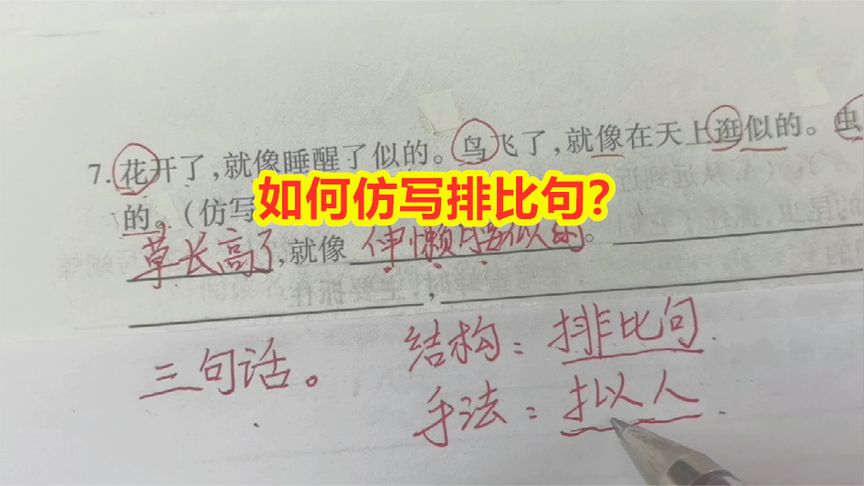 7. 花开了，就像睡醒了似的。鸟飞了，就像在天上逛似的。虫
的。（仿写
如何仿写排比句？
草长高了，就像 伸懒腰似的。
，
三句话。 结构：排比句.
手法：拟人.